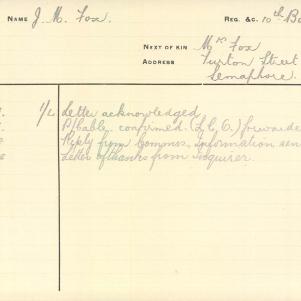 NAME J. M. Fox. REG. &C. 10th Ba
NEXT OF KIN Mrs Fox
ADDRESS Turton Street
Semaphore.
1/2 Letter acknowledged.
P/Cable confirmed. (L.C.O.) forwarde
Reply from Commrs. information sen
Letter of thanks from inquirer.